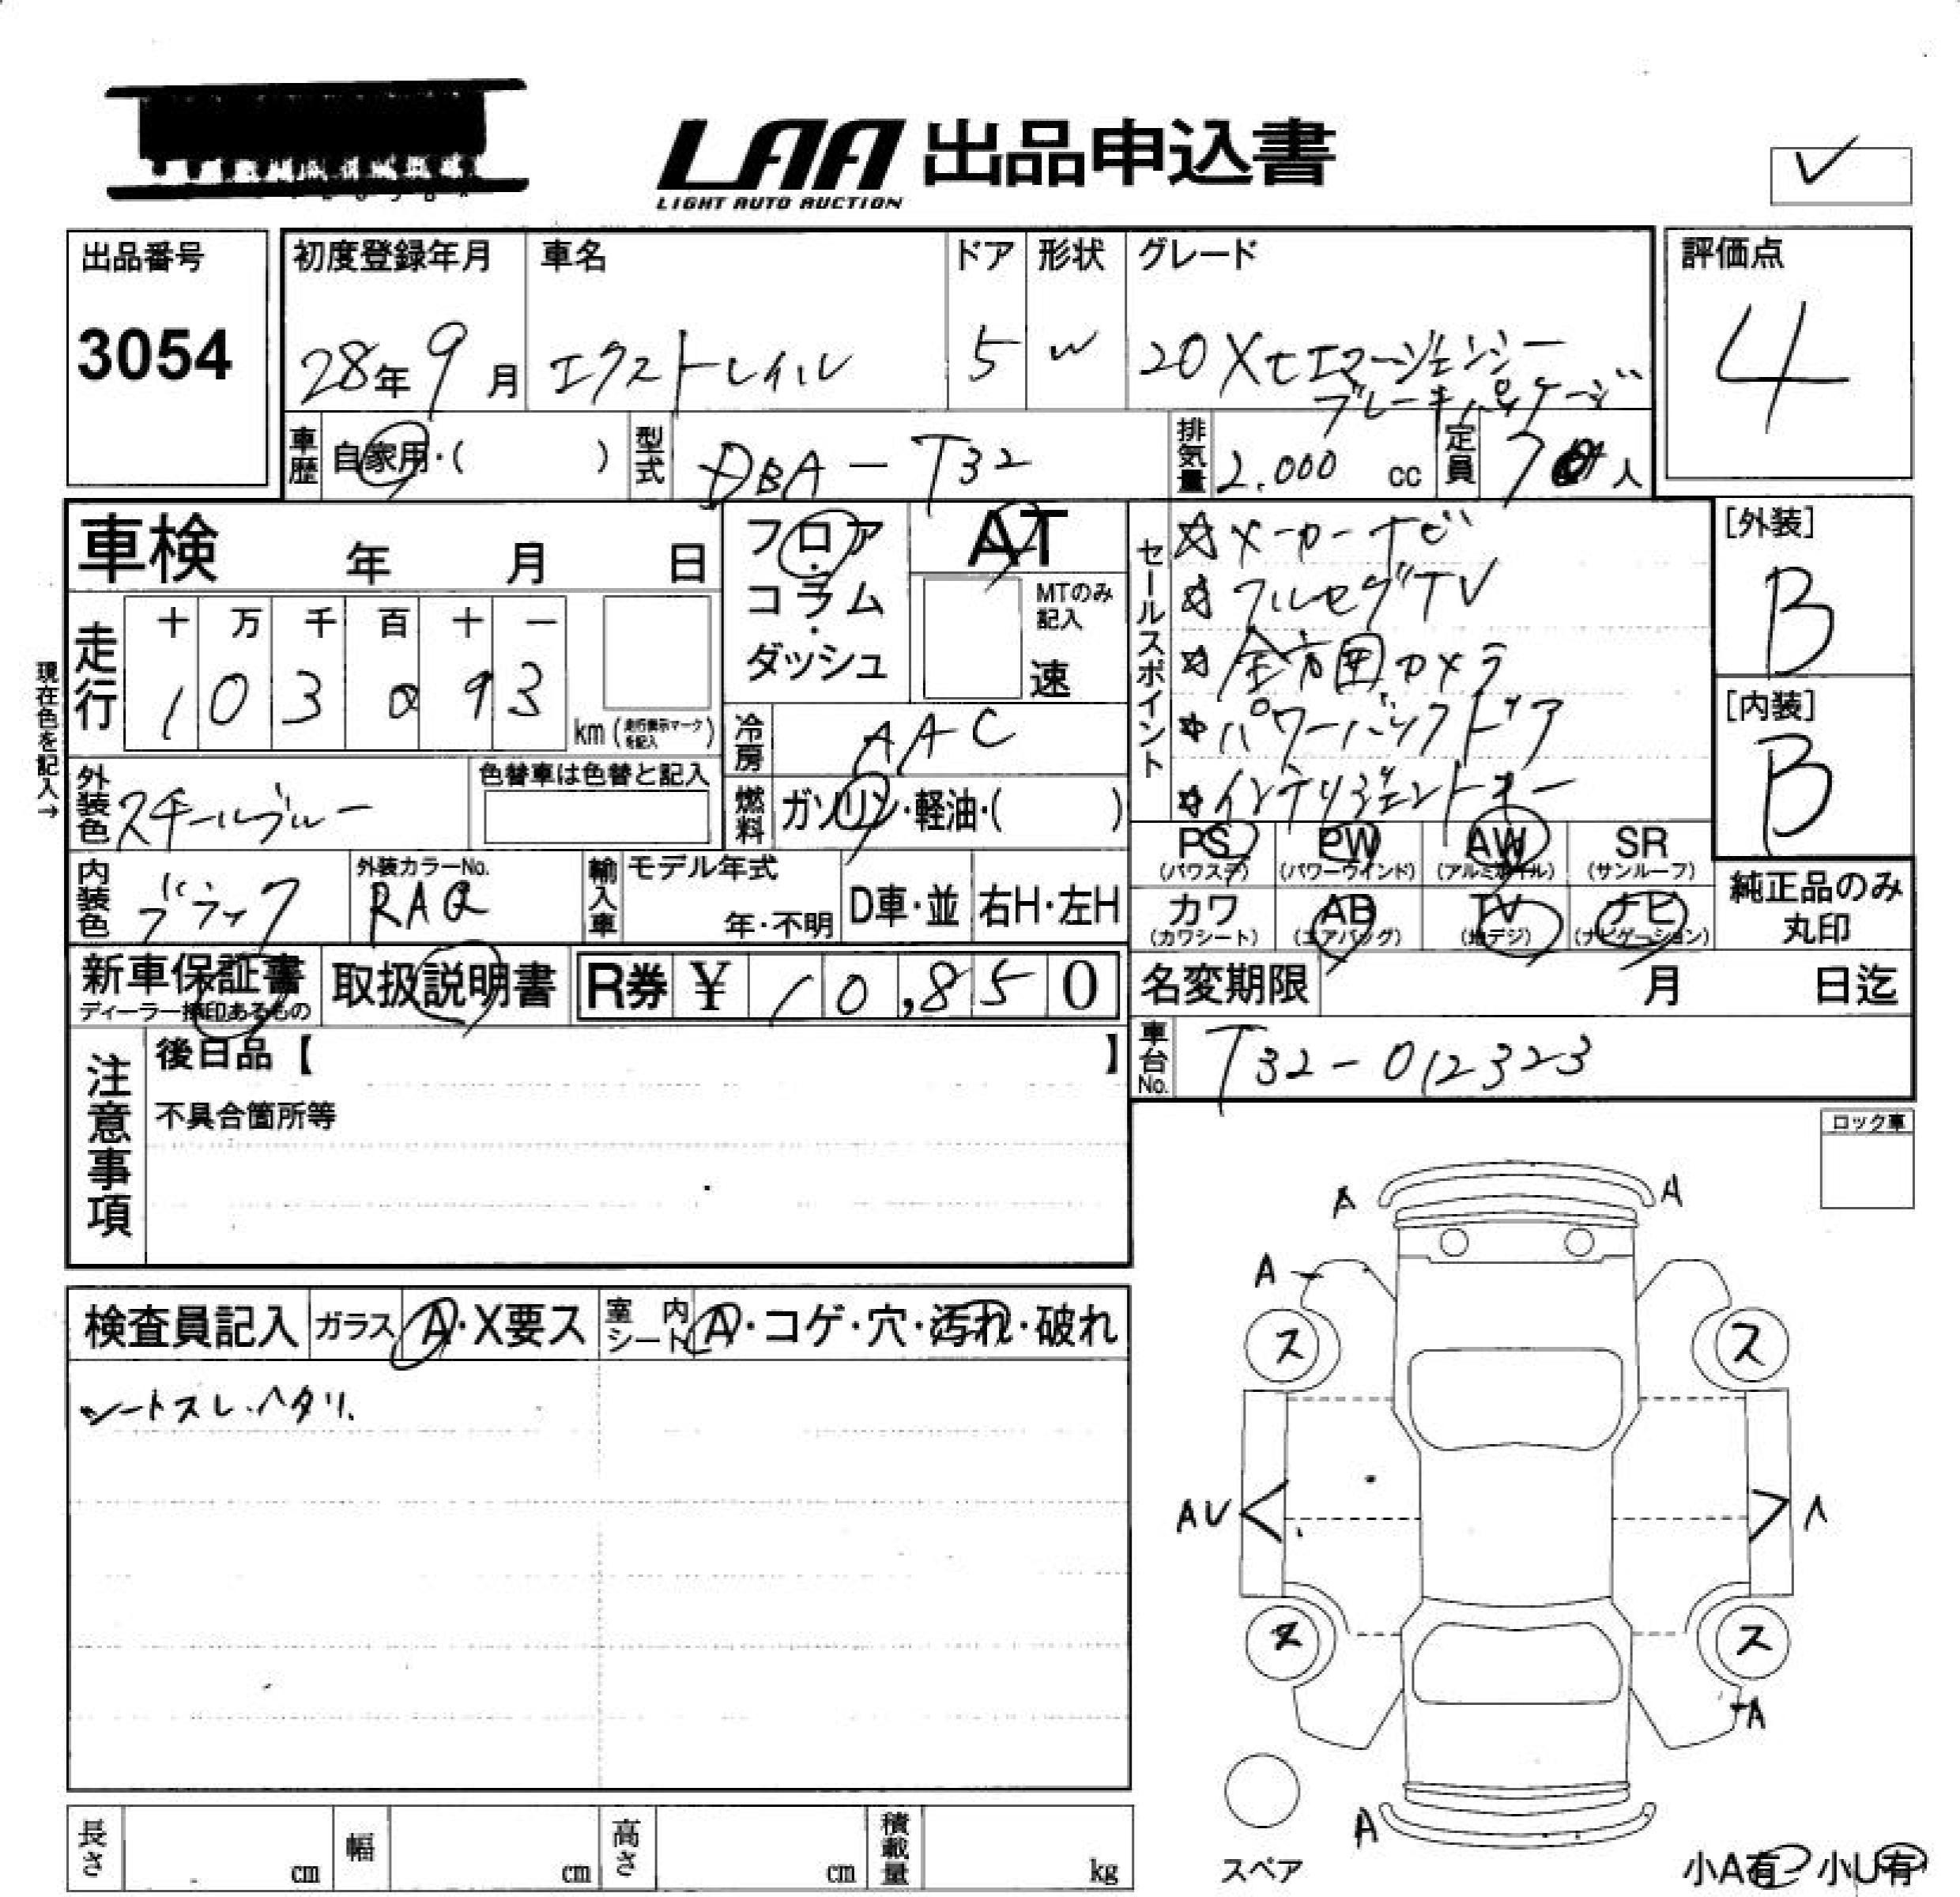 LAA 出品申込書
LIGHT AUTO AUCTION
出品番号
3054
初度登録年月
28年9月
車名
エクストレイル
ドア
5
形状
W
グレード
20Xtエマージェンシー
ブレーキパッケージ
評価点
4
車歴
自家用・( )
型式
DBA-T32
排気量
2.000 cc
定員
7 人
車検 年 月 日
フロア・コラム・ダッシュ
AT
MTのみ記入
速
セールスポイント
☆メーカーナビ
☆フルセグTV
☆全方囲カメラ
☆パワーバックドア
☆インテリジェントキー
[外装]
B
[内装]
B
現在色を記入→
走行
十 万 千 百 十 一
1 0 3 0 9 3
km (走行表示マークを記入)
冷房
AAC
外装色
スチールブルー
色替車は色替と記入
燃料
ガソリン・軽油・( )
PS (パワステ)
PW (パワーウインド)
AW (アルミホイル)
SR (サンルーフ)
カワ (カワシート)
AB (エアバッグ)
TV (地デジ)
ナビ (ナビゲーション)
純正品のみ丸印
内装色
ブラック
外装カラーNo.
RAQ
輸入車
モデル年式
年・不明
D車・並
右H・左H
新車保証書
ディーラー捺印あるもの
取扱説明書
R券 ¥ 10,850
名変期限 月 日迄
車台No.
T32-012323
注意事項
後日品【 】
不具合箇所等
ロック車
検査員記入
ガラス A・X要ス
室内シート A・コゲ・穴・汚れ・破れ
シートスレ・ヘタリ.
A A
A
ス ス
AV A
ス ス
A
A
スペア
小A有 小U有
長さ cm
幅 cm
高さ cm
積載量 kg